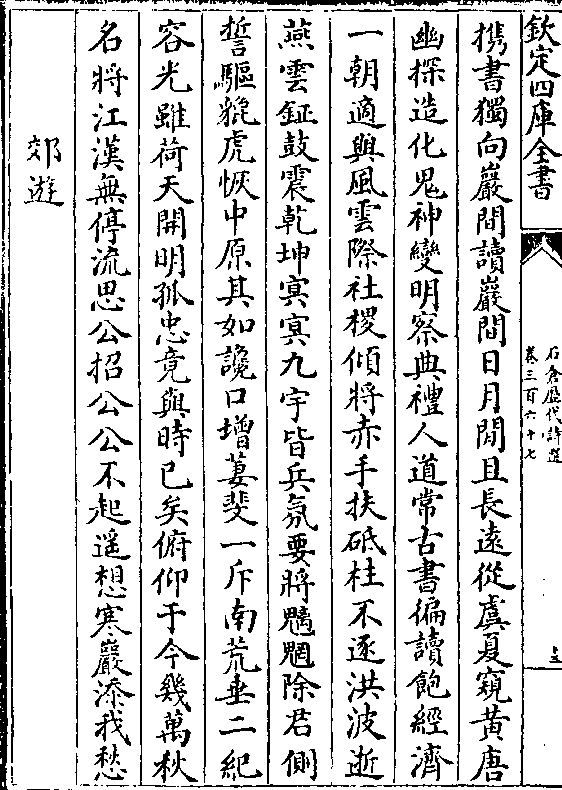 欽定四庫全書
石倉歷代詩選
卷三百六十七
攜書獨向巖間讀巖間日月閒且長遠從虞夏窺黃唐
幽探造化鬼神變明察典禮人道常古書徧讀飽經濟
一朝適與風雲際社稷傾將赤手扶砥柱不逐洪波逝
燕雲鉦鼓震乾坤㝠㝠九宇皆兵氛要將魑魍除君側
誓驅貔虎恢中原其如讒口增萋斐一斥南荒垂二紀
容光雖荷天開明孤忠竟與時已矣俯仰于今幾萬秋
名將江漢無停流思公招公公不起遥想寒巖添我愁
郊遊